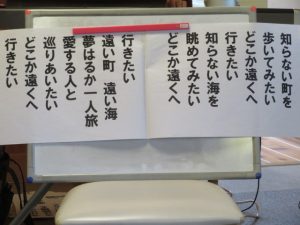 知らない町を
歩いてみたい
どこか遠くへ
行きたい
知らない海を
眺めてみたい
どこか遠くへ
行きたい
遠い町　遠い海
夢はるか一人旅
愛する人と
巡りあいたい
どこか遠くへ
行きたい